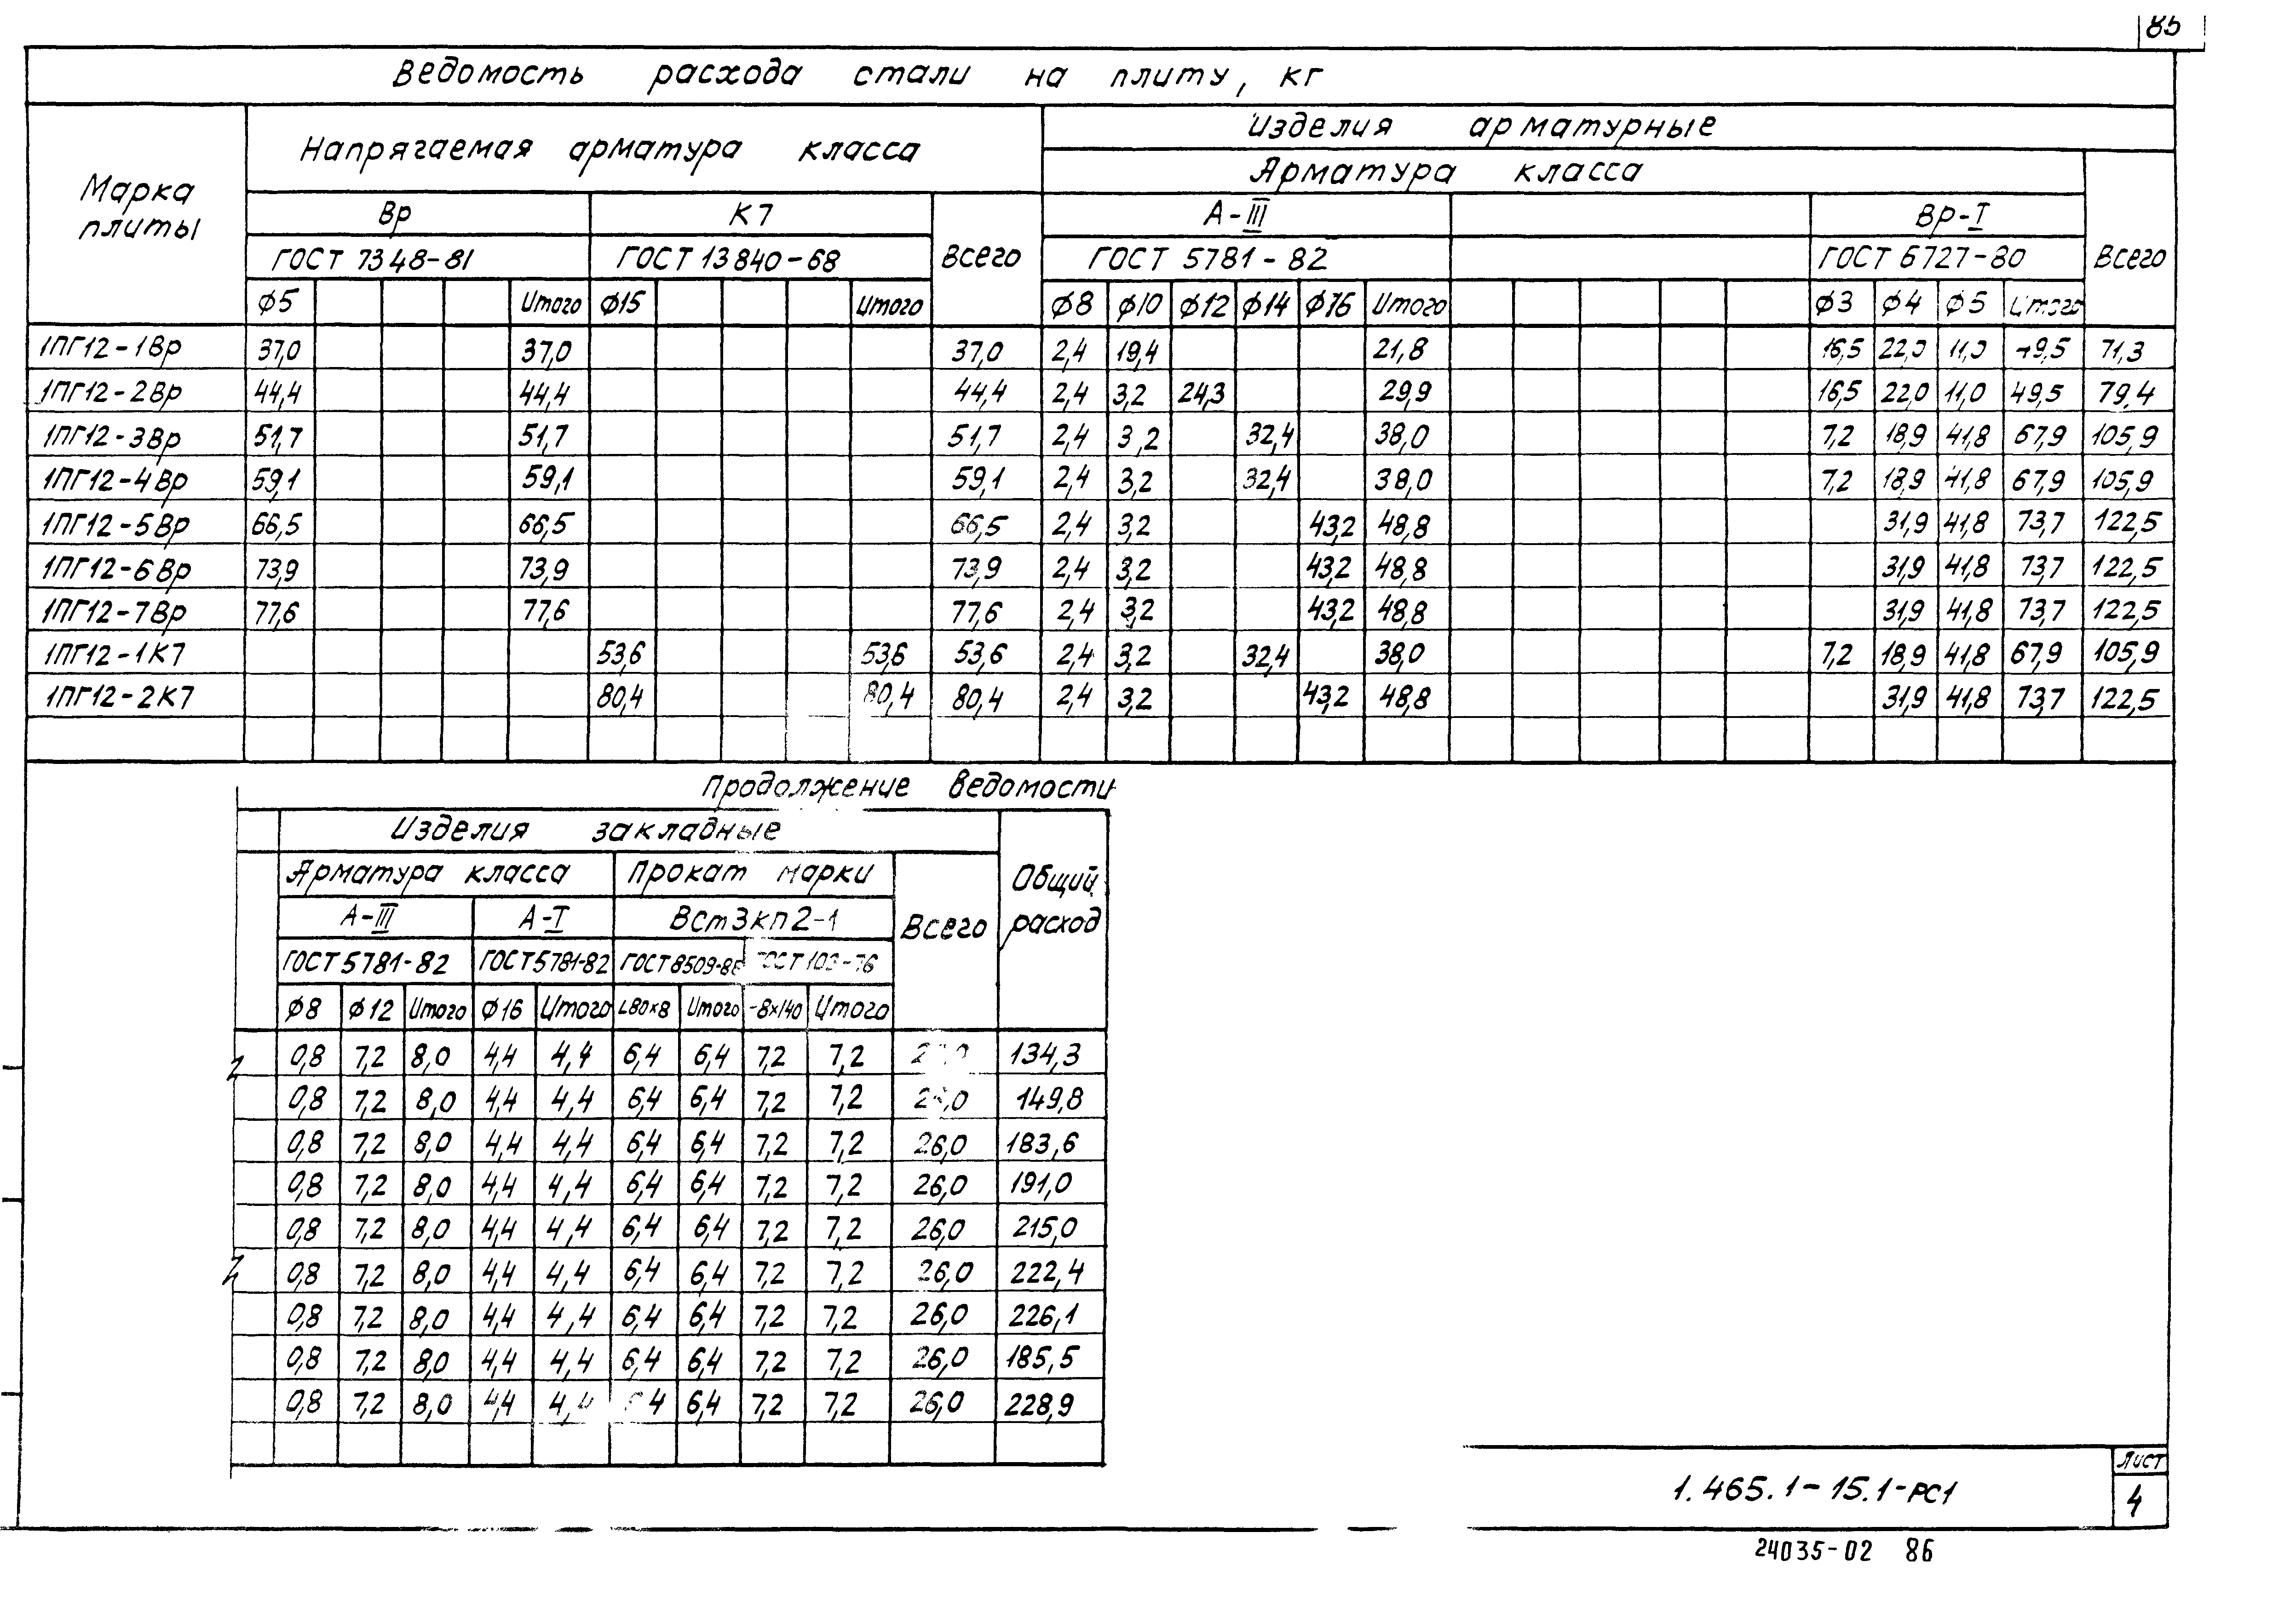 85
Ведомость расхода стали на плиту, кг
Марка плиты
Напрягаемая арматура класса
Изделия арматурные
Арматура класса
Вр К7 Всего А-III Вр-I Всего
ГОСТ 7348-81 ГОСТ 13840-68 ГОСТ 5781-82 ГОСТ 6727-80
ϕ5 Итого ϕ15 Итого ϕ8 ϕ10 ϕ12 ϕ14 ϕ16 Итого ϕ3 ϕ4 ϕ5 Итого
1ПГ12-1Вр 37,0 37,0 37,0 2,4 19,4 21,8 16,5 22,0 11,0 49,5 71,3
1ПГ12-2Вр 44,4 44,4 44,4 2,4 3,2 24,3 29,9 16,5 22,0 11,0 49,5 79,4
1ПГ12-3Вр 51,7 51,7 51,7 2,4 3,2 32,4 38,0 7,2 18,9 41,8 67,9 105,9
1ПГ12-4Вр 59,1 59,1 59,1 2,4 3,2 32,4 38,0 7,2 18,9 41,8 67,9 105,9
1ПГ12-5Вр 66,5 66,5 66,5 2,4 3,2 43,2 48,8 31,9 41,8 73,7 122,5
1ПГ12-6Вр 73,9 73,9 73,9 2,4 3,2 43,2 48,8 31,9 41,8 73,7 122,5
1ПГ12-7Вр 77,6 77,6 77,6 2,4 3,2 43,2 48,8 31,9 41,8 73,7 122,5
1ПГ12-1К7 53,6 53,6 53,6 2,4 3,2 32,4 38,0 7,2 18,9 41,8 67,9 105,9
1ПГ12-2К7 80,4 80,4 80,4 2,4 3,2 43,2 48,8 31,9 41,8 73,7 122,5
Продолжение ведомости
Изделия закладные
Арматура класса Прокат марки Всего Общий расход
А-III А-I ВСт3кп2-1
ГОСТ 5781-82 ГОСТ 5781-82 ГОСТ 8509-86 ГОСТ 103-76
ϕ8 ϕ12 Итого ϕ16 Итого L80×8 Итого -8×140 Итого
0,8 7,2 8,0 4,4 4,4 6,4 6,4 7,2 7,2 134,3
0,8 7,2 8,0 4,4 4,4 6,4 6,4 7,2 7,2 26,0 149,8
0,8 7,2 8,0 4,4 4,4 6,4 6,4 7,2 7,2 26,0 183,6
0,8 7,2 8,0 4,4 4,4 6,4 6,4 7,2 7,2 26,0 191,0
0,8 7,2 8,0 4,4 4,4 6,4 6,4 7,2 7,2 26,0 215,0
0,8 7,2 8,0 4,4 4,4 6,4 6,4 7,2 7,2 26,0 222,4
0,8 7,2 8,0 4,4 4,4 6,4 6,4 7,2 7,2 26,0 226,1
0,8 7,2 8,0 4,4 4,4 6,4 6,4 7,2 7,2 26,0 185,5
0,8 7,2 8,0 4,4 4,4 6,4 6,4 7,2 7,2 26,0 228,9
1.465.1-15.1-РС1
Лист
4
24035-02 86